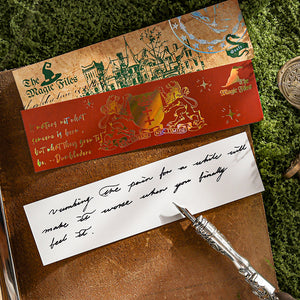 The
Magic Files
The
Magic Files
it matters not what
someone is born,
but what they grow to
be. -Dumbledore
Numbing the pain for a while will
make it worse when you finally
feel it.